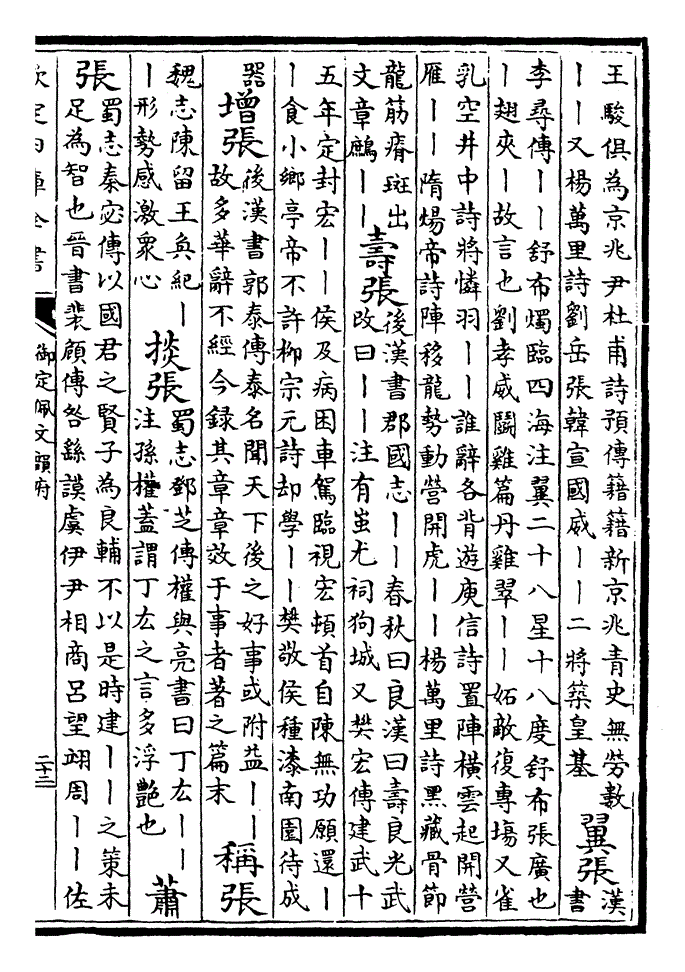 王駿俱為京兆尹杜甫詩預傳籍籍新京兆青史無勞數
丨丨又楊萬里詩劉岳張韓宣國威丨丨二將築皇基
翼張
漢
書
李尋傳丨丨舒布燭臨四海注翼二十八星十八度舒布張廣也
丨翅夾丨故言也劉孝威鬬雞篇丹雞翠丨丨妬敵復專塲又雀
乳空井中詩將憐羽丨丨誰辭各背遊庾信詩置陣橫雲起開營
雁丨丨隋煬帝詩陣移龍勢動營開虎丨丨楊萬里詩黑藏骨節
龍筋瘠斑出
文章鷳丨丨
壽張
後漢書郡國志丨丨春秋曰良漢曰壽良光武
改曰丨丨注有蚩尤祠狗城又樊宏傳建武十
五年定封宏丨丨侯及病困車駕臨視宏頓首自陳無功願還丨
丨食小鄉亭帝不許柳宗元詩却學丨丨樊敬侯種漆南園待成
器
增張
後漢書郭泰傳泰名聞天下後之好事或附益丨丨
故多華辭不經今録其章章效于事者著之篇末
稱張
魏志陳留王奐紀丨
丨形勢感激衆心
掞張
蜀志鄧芝傳權與亮書曰丁厷丨丨
注孫權蓋謂丁厷之言多浮艷也
蕭
張
蜀志秦宓傳以國君之賢子為良輔不以是時建丨丨之策未
足為智也晉書裴頠傳咎繇謨虞伊尹相商呂望翊周丨丨佐
欽定四庫全書
御定佩文韻府
二十三